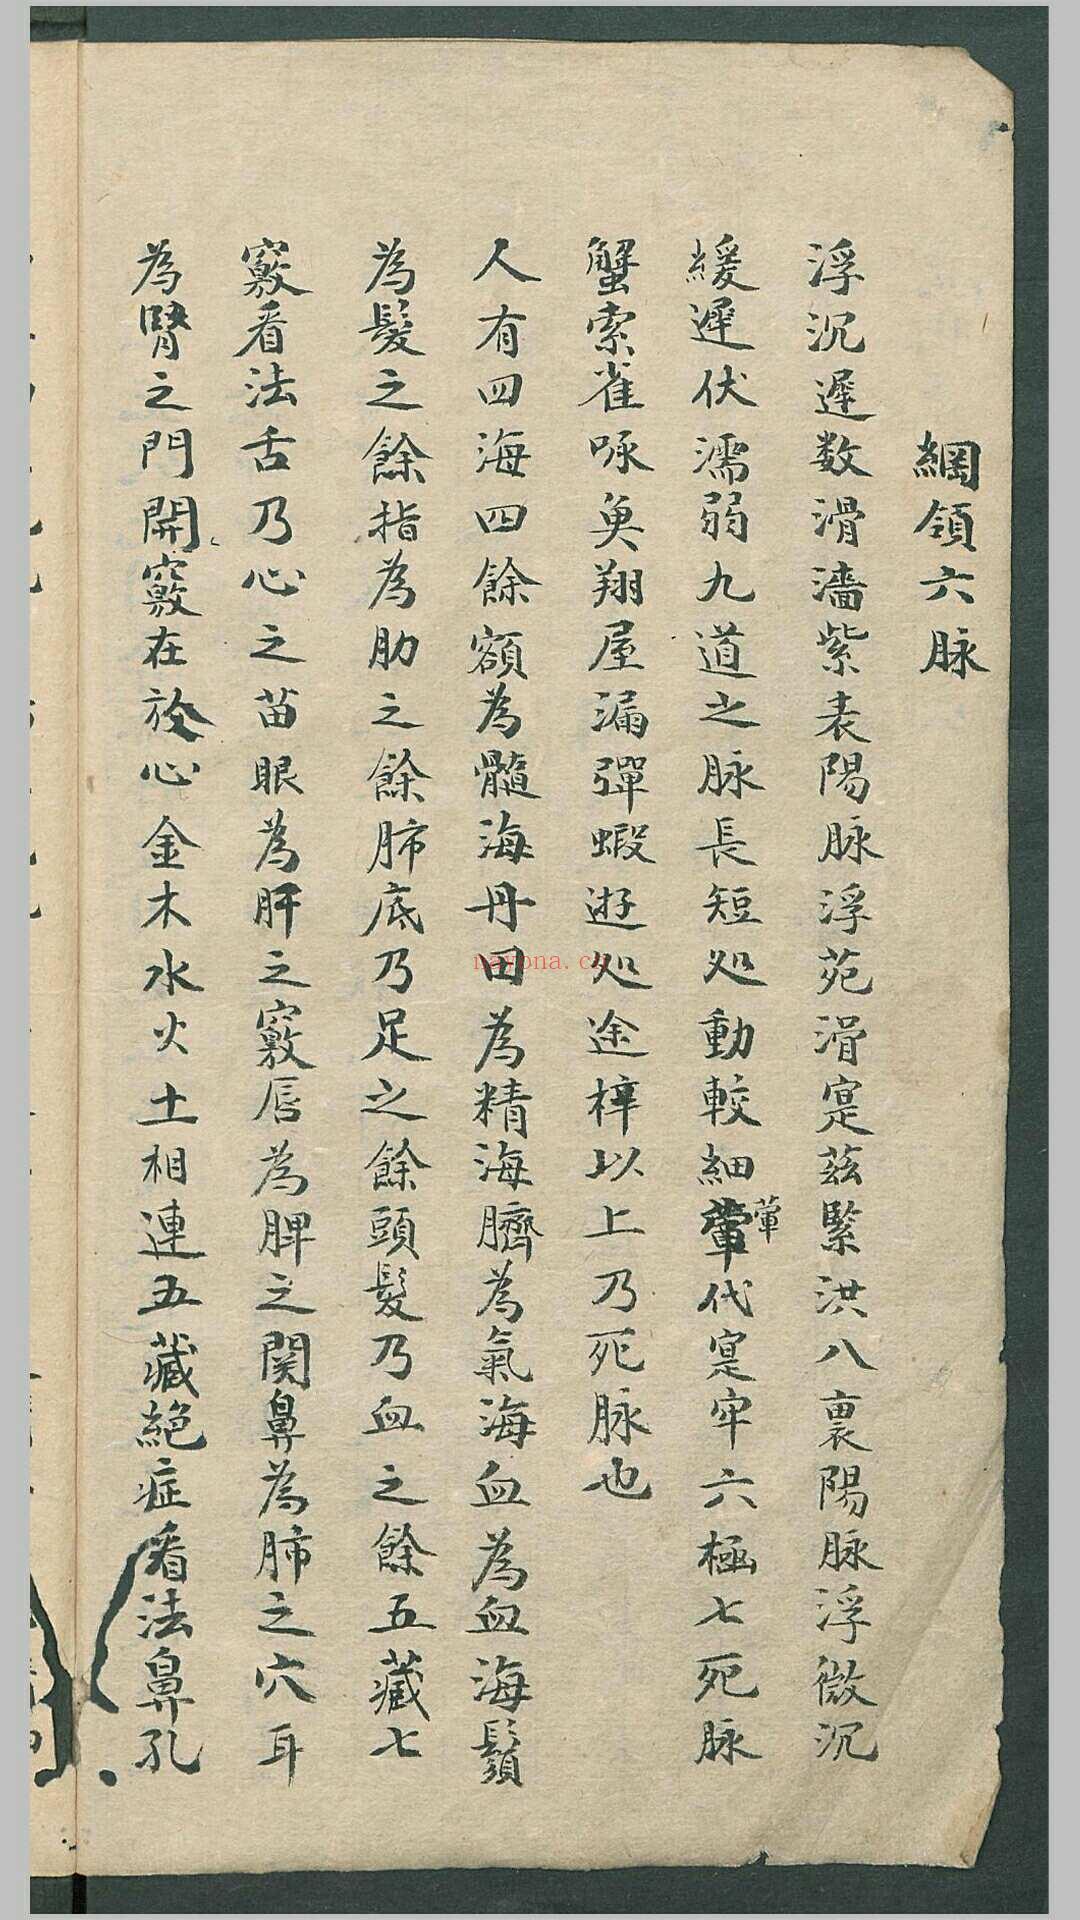 綱領六脉
浮沉遲数滑濇紫表陽脉浮苑滑寔茲緊洪八裏陽脉浮微沉
緩遲伏濡弱九道之脉長短処動較細葷代寔牢六極七死脉
葷
蟹索雀啄魚翔屋漏彈蝦逰処途梓以上乃死脉也
人有四海四餘額為髓海丹田為精海臍為氣海血為血海鬚
為髮之餘指為肋之餘肺底乃足之餘頭髮乃血之餘五藏七
竅看法舌乃心之苗眼為肝之竅唇為脾之関鼻為肺之穴耳
為腎之門開竅在於心金木水火土相連五藏絕症看法鼻孔
nayona.cn